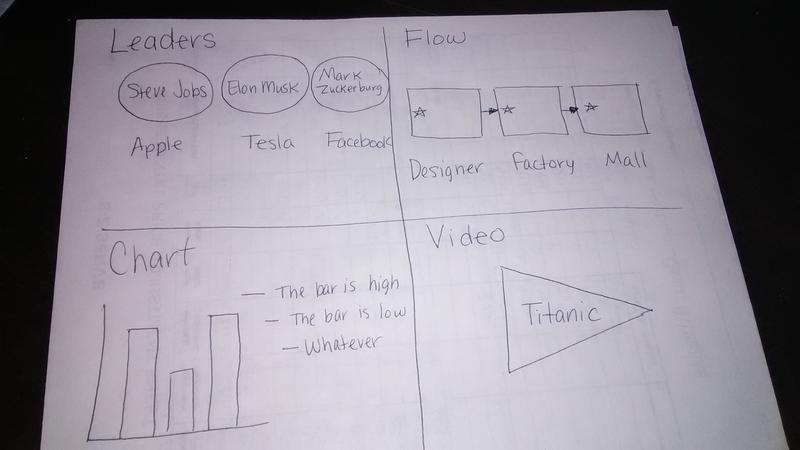 Leaders
Steve Jobs
Elon Musk
Mark
Zuckerburg
Apple
Tesla
Facebook
Flow
Designer
Factory
Mall
Chart
— The bar is high
— The bar is low
— Whatever
Video
Titanic